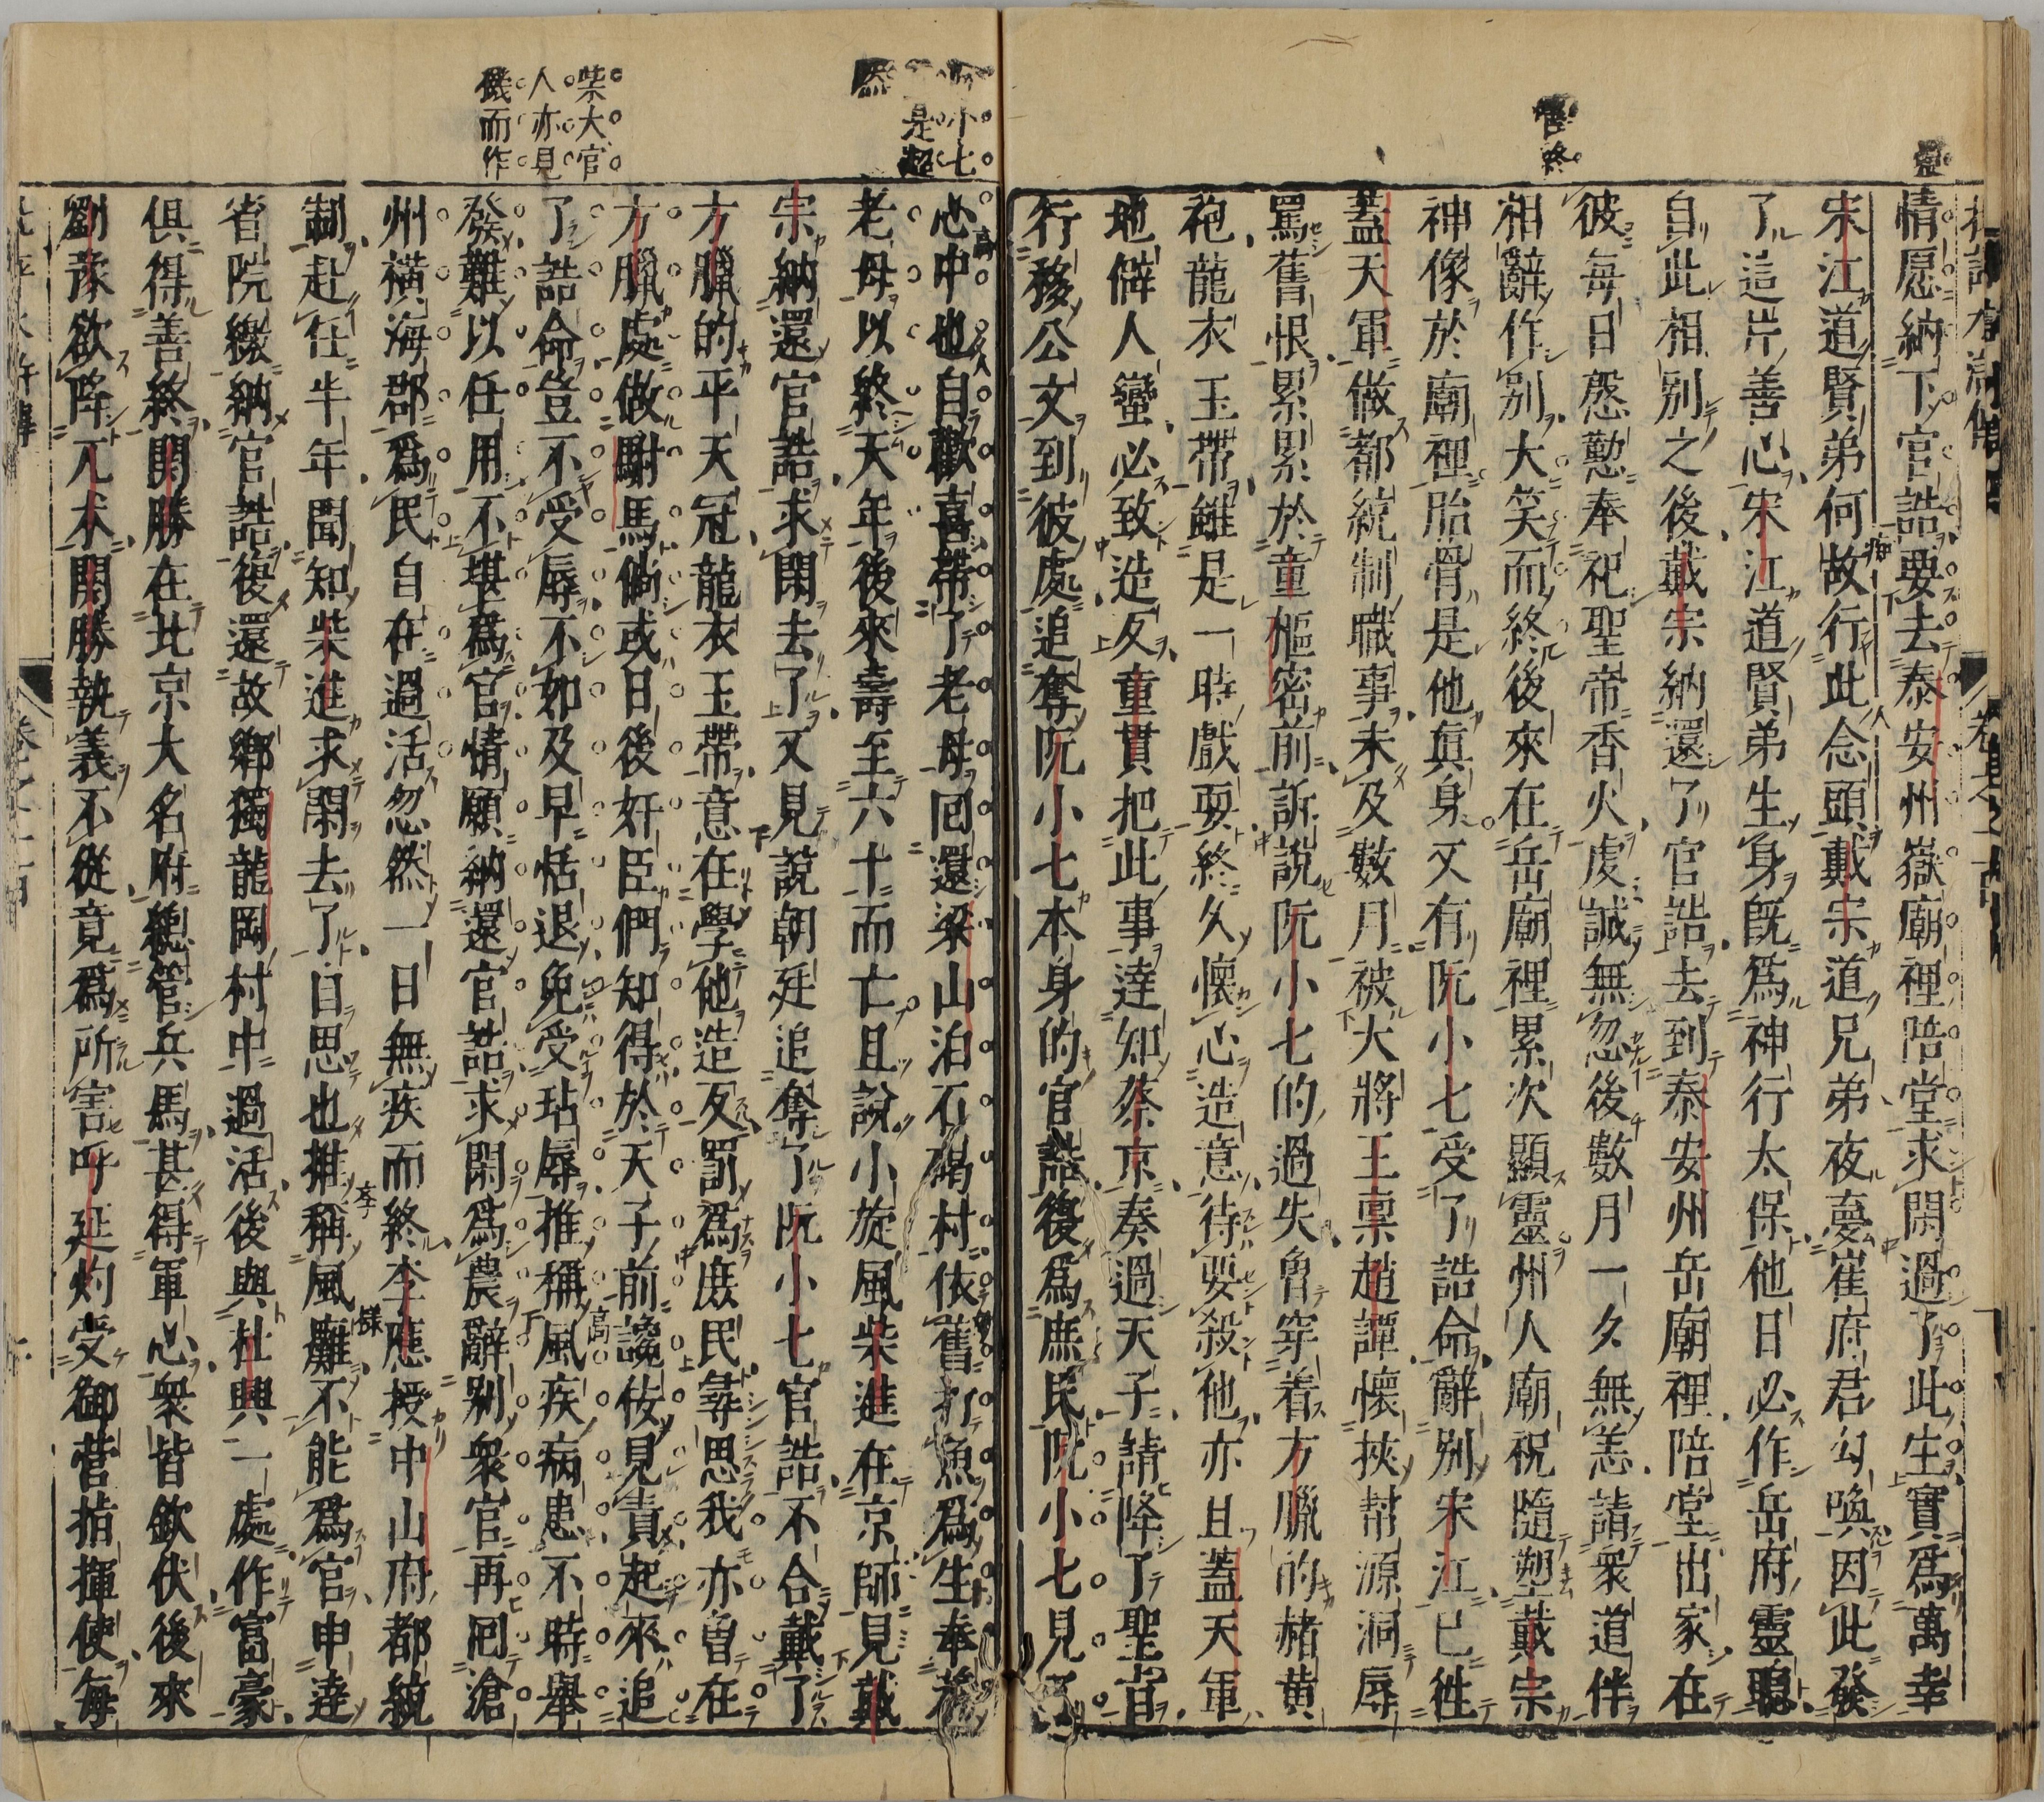 情愿納下官誥要去泰安州嶽廟裡陪堂求閑過了此生實爲萬幸
宋江道賢弟何故行此念頭戴宗道兄弟夜夢崔府君勾喚因此發
了這片善心宋江道賢弟生身旣爲神行太保他日必作岳府靈聰
自此相別之後戴宗納還了官誥去到泰安州岳廟裡陪堂出家在
彼每日慇懃奉祀聖帝香火虔誠無忽後數月一夕無恙請衆道伴
相辭作別大笑而終後來在岳廟裡累次顯靈州人廟祝隨塑戴宗
神像於廟裡胎骨是他眞身又有阮小七受了誥命辭別宋江已徃
蓋天軍做都統制職事未及數月被大將王稟趙譚懷挾幇源洞辱
罵舊恨累累於童樞密前訴說阮小七的過失曾穿着方臘的赭黄
袍龍衣玉帶雖是一時戲耍終久懷心造意待要殺他亦且蓋天軍
地僻人蠻必致造反童貫把此事達知蔡京奏過天子請降了聖旨
行移公文到彼處追奪阮小七本身的官誥復爲庶民阮小七見了
心中也自歡喜帶了老母回還梁山泊石碣村依舊打魚爲生奉養
老母以終天年後來壽至六十而亡且說小旋風柴進在京師見戴
宗納還官誥求閑去了又見說朝廷追奪了阮小七官誥不合戴了
方臘的平天冠龍衣玉帶意在學他造反罰爲庶民尋思我亦曾在
方臘處做駙馬倘或日後奸臣們知得於天子前讒佞見責起來追
了誥命豈不受辱不如及早恬退免受玷辱推稱風疾病患不時舉
發難以任用不堪爲官情願納還官誥求閑爲農辭別衆官再囘滄
州橫海郡爲民自在過活忽然一日無疾而終李應授中山府都統
制赴任半年聞知柴進求閑去了自思也推稱風癱不能爲官申達
省院繳納官誥復還故鄉獨龍岡村中過活後與杜興一處作富豪
俱得善終關勝在北京大名府總管兵馬甚得軍心衆皆欽伏後來
劉豫欲降兀朮關勝執義不從竟爲所害呼延灼受御營指揮使每
柴大官
人亦見
機而作